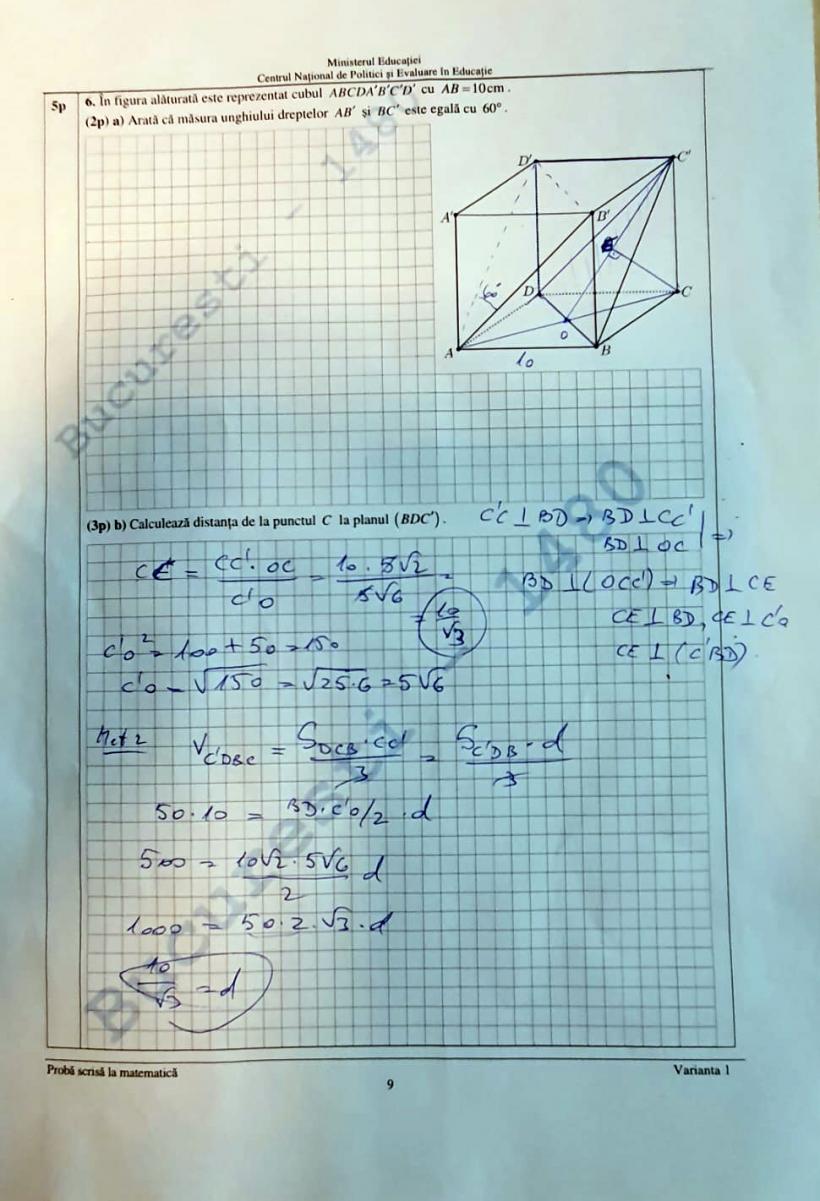 Ministerul Educației
Centrul Național de Politici și Evaluare în Educație
5p
6. În figura alăturată este reprezentat cubul ABCDA'B'C'D' cu AB = 10 cm.
(2p) a) Arată că măsura unghiului dreptelor AB' și BC' este egală cu 60°.
D' C'
A' B'
E
60°
D C
O
A B
10
București - 1480
(3p) b) Calculează distanța de la punctul C la planul (BDC').
C'C ⊥ BD → BD ⊥ CC'
BD ⊥ OC | =>
BD ⊥ (OCC') => BD ⊥ CE
CE ⊥ BD, CE ⊥ C'O
CE ⊥ (C'BD).
CE = CC' · OC / C'O = 10 · 5√2 / 5√6 =
= 10/√3
C'O² = 100 + 50 = 150
C'O = √150 = √25·6 = 5√6
Met 2 V C'DBC = S DCB · CC' / 3 = S C'DB · d / 3
50 · 10 = BD · C'O/2 · d
500 = 10√2 · 5√6 / 2 d
1000 = 50 · 2 · √3 · d
10/√3 = d
București - 1480
Probă scrisă la matematică Varianta 1
9